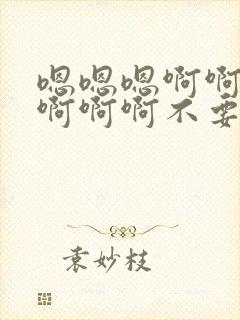 嗯嗯嗯啊啊
啊啊啊不要
袁妙枝